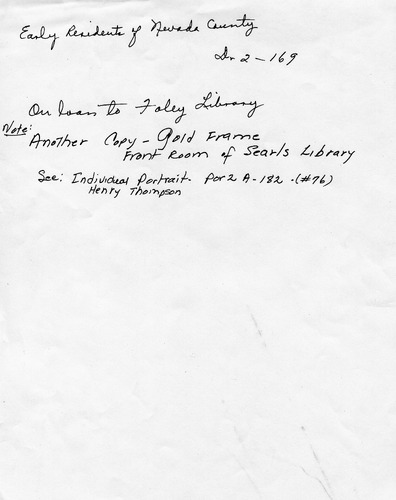 Early Residents of Nevada County
Dr 2-169
On loan to Foley Library
Note:
Another Copy - Gold Frame
Front Room of Searls Library
See: Individual Portrait. Por 2 A-182 . (#76)
Henry Thompson